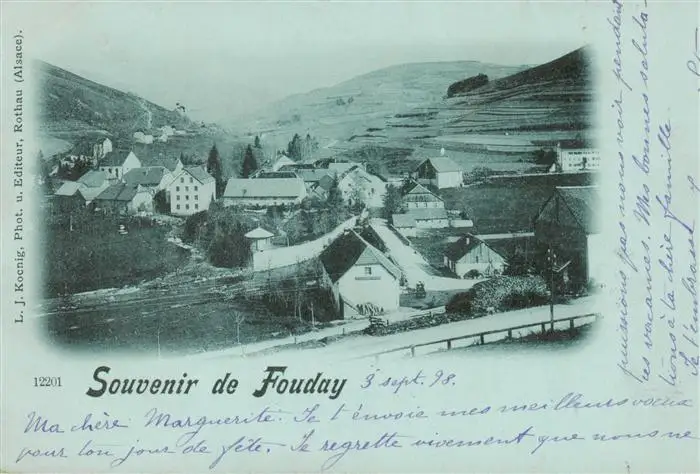 L. J. Koenig, Phot. u. Editeur, Rothau (Alsace).
12201
Souvenir de Fouday
3 sept. 98.
Ma chère Marguerite. Je t'envoie mes meilleurs voeux
pour ton jour de fête. Je regrette vivement que nous ne
puissions pas nous voir pendant
les vacances. Mes bonnes saluta-
tions à ta chère famille.
Je t'embrasse